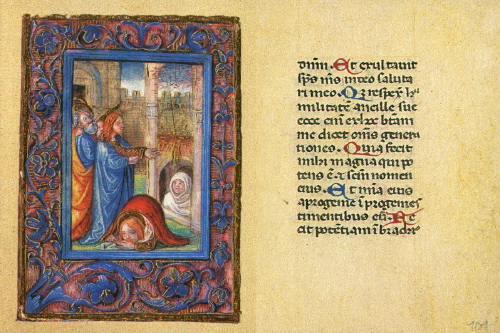 dnm̄. Et exultavit
sp̄s m̄s in deo saluta
ri meo. Q̄ respex̄ hu
militatē ancille sue
ecce eni ex hoc btām
me dicet om̄s genera
tiones. Quia fecit
mihi magna qui po
tens ē & sc̄m nomen
eius. Et mīa eius
a progenie ī progenies
timentibus eū. Fe
cit potētiam ī brachio
101